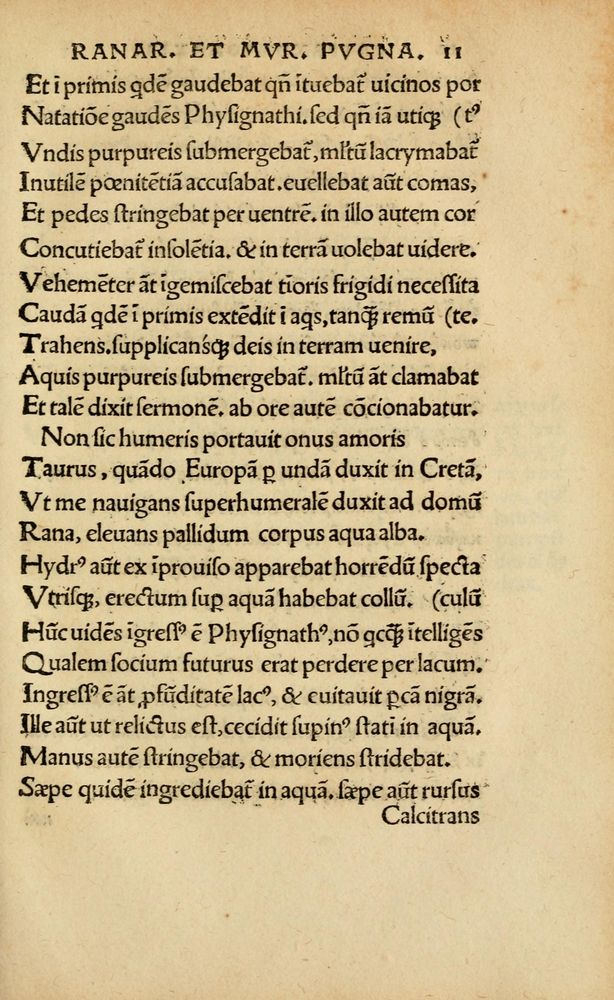 RANAR. ET MVR. PVGNA. 11
Et ī primis qdē gaudebat qn̄ ītuebat᷑ uicinos por
Natatiōe gaudēs Physignathi. sed qn̄ iā utiqꝫ (tꝰ
Vndis purpureis submergebat᷑, ml̄tū lacrymabat᷑
Inutilē pœnitētiā accusabat. euellebat aūt comas,
Et pedes stringebat per uentrē. in illo autem cor
Concutiebat᷑ insolētia. & in terrā uolebat uidere.
Vehemēter āt īgemiscebat tīoris frigidi necessita
Caudā qdē ī primis extēdit ī aqs, tanqꝫ remū (te.
Trahens. supplicansqꝫ deis in terram uenire,
Aquis purpureis submergebat᷑. ml̄tū āt clamabat
Et talē dixit sermonē. ab ore autē cōcionabatur.
Non sic humeris portauit onus amoris
Taurus, quādo Europā ꝑ undā duxit in Cretā,
Vt me nauigans superhumeralē duxit ad domū
Rana, eleuans pallidum corpus aqua alba.
Hydrꝰ aūt ex īprouiso apparebat horrēdū specta
Vtrisqꝫ, erectum suꝑ aquā habebat collū. (culū
Hūc uidēs īgressꝰ ē Physignathꝰ, nō qcqꝫ ītelligēs
Qualem socium futurus erat perdere per lacum.
Ingressꝰ ē āt ꝓfūditatē lacꝰ, & euitauit ꝑcā nigrā.
Ille aūt ut relictus est, cecidit supinꝰ statī in aquā.
Manus autē stringebat, & moriens stridebat.
Sæpe quidē ingrediebat᷑ in aquā. sæpe aūt rursus
Calcitrans